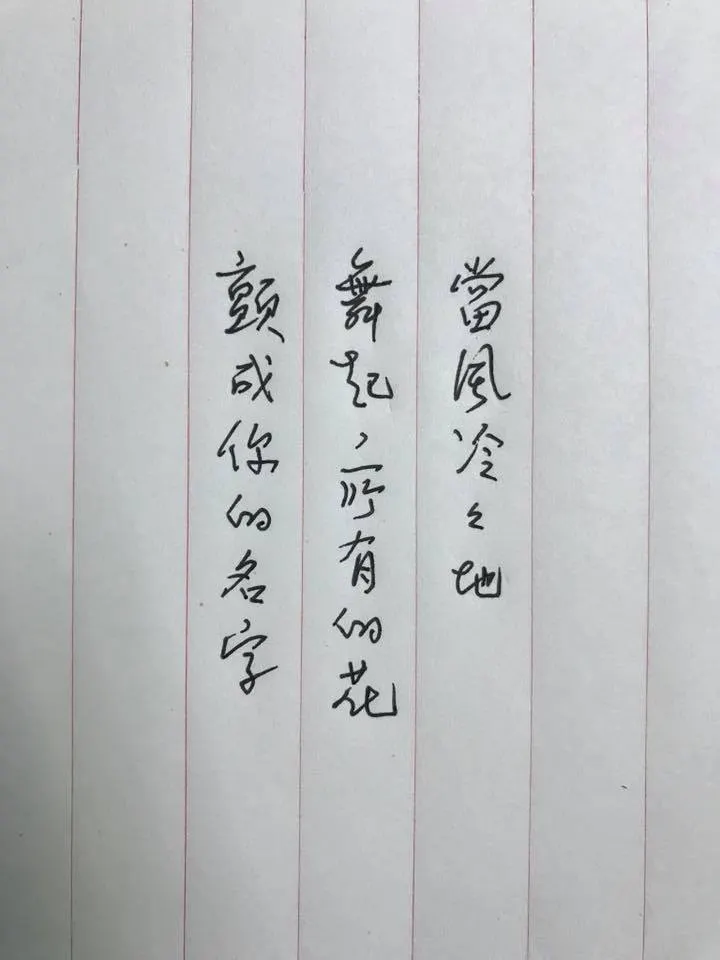 當風冷々地
舞起，所有的花
顫成你的名字